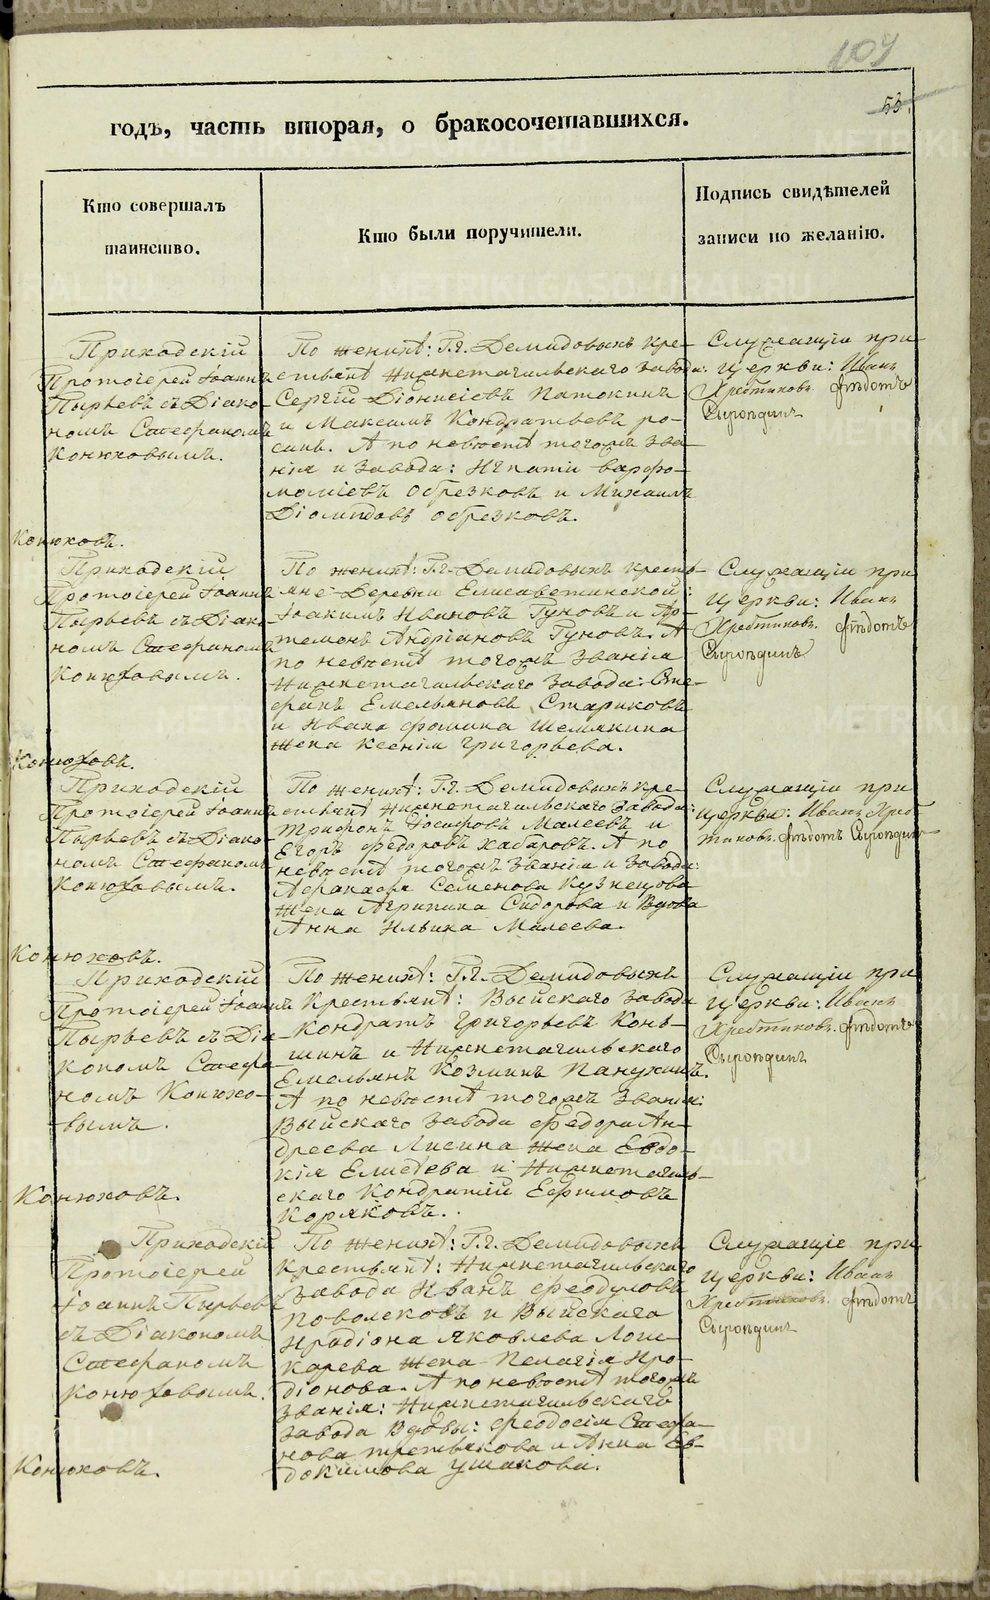 109
53.
годъ, часть вторая, о бракосочетавшихся.
Кто совершалъ
таинство.
Кто были поручители.
Подпись свидѣтелей
записи по желанію.
Приходскій
Протоіерей Іоаннъ
Пырьевъ съ Діако-
номъ Стефаномъ
Конюховымъ.
Конюховъ.
По женихѣ: Г.г. Демидовыхъ кре-
стьянѣ Нижнетагильскаго завода:
Сергій Діонисіевъ Патокинъ
и Максимъ Кондратьевъ ро-
синъ. А по невѣстѣ тогожъ зва-
нія и завода: Игнатій варфо-
ломіевъ Обрезковъ и Михаилъ
Діомидовъ обрезковъ.
Служащіи при
церкви: Иванъ
Хребтиковъ. Ѳедотъ
Сыропдинъ
Приходскій
Протоіерей Іоаннъ
Пырьевъ съ Діако-
номъ Стефаномъ
Конюховымъ.
Конюховъ.
По женихѣ: Г.г. Демидовыхъ кресть-
яне Деревни Елисаветинской:
Іоакимъ Ивановъ Гуновъ и Ар-
темонъ Андріановъ Гуновъ. А
по невѣстѣ тогожъ званія
Нижнетагильскаго завода: Сте-
фанъ Емельяновъ Стариковъ
и Ивана фомина Шемякина
жена Ксенія Григорьева.
Служащіи при
церкви: Иванъ
Хребтиковъ. Ѳедотъ
Сыропдинъ
Приходскій
Протоіерей Іоаннъ
Пырьевъ съ Діако-
номъ Стефаномъ
Конюховымъ.
Конюховъ.
По женихѣ: Г.г. Демидовыхъ кре-
стьянѣ Нижнетагильскаго завода:
Трифонъ Іосифовъ Малеевъ и
Егоръ федоровъ хабаровъ. А по
невѣстѣ тогожъ званія и завода:
Афанасья Семенова Кузнецова
жена Агрипина Сидорова и Вдова
Анна Ильина Малеева.
Служащіи при
церкви: Иванъ Хреб-
тиковъ. Ѳедотъ Сыропдинъ
Приходскій
Протоіерей Іоаннъ
Пырьевъ съ Діа-
кономъ Стефа-
номъ Конюхо-
вымъ.
Конюховъ.
По женихѣ: Г.г. Демидовыхъ
Крестьянѣ: Выйскаго завода
Кондратъ Григорьевъ Конь-
шинъ и Нижнетагильскаго
Емельянъ Козминъ Панухинъ.
А по невѣстѣ тогожъ званія:
Выйскаго завода федора Ан-
дреева Лисина жена Евдо-
кія Елисѣева и Нижнетагиль-
скаго Кондратій Ефимовъ
Коряковъ.
Служащіи при
церкви: Иванъ
Хребтиковъ. Ѳедотъ
Сыропдинъ
Приходскій
Протоіерей
Іоаннъ Пырьевъ
съ Діакономъ
Стефаномъ
Конюховымъ.
Конюховъ.
По женихѣ: Г.г. Демидовыхъ
Крестьянѣ: Нижнетагильскаго
завода Иванъ феодуловъ
Поволсковъ и Выйскаго
Иродіона Яковлева Лош-
карева жена Пелагія Иро-
діонова. А по невѣстѣ тогожъ
званія: Нижнетагильскаго
завода Вдовы: феодосія Стефа-
нова третьякова и Анна Ев-
докимова ушакова.
Служащіе при
церкви: Иванъ
Хребтиковъ. Ѳедотъ
Сыропдинъ